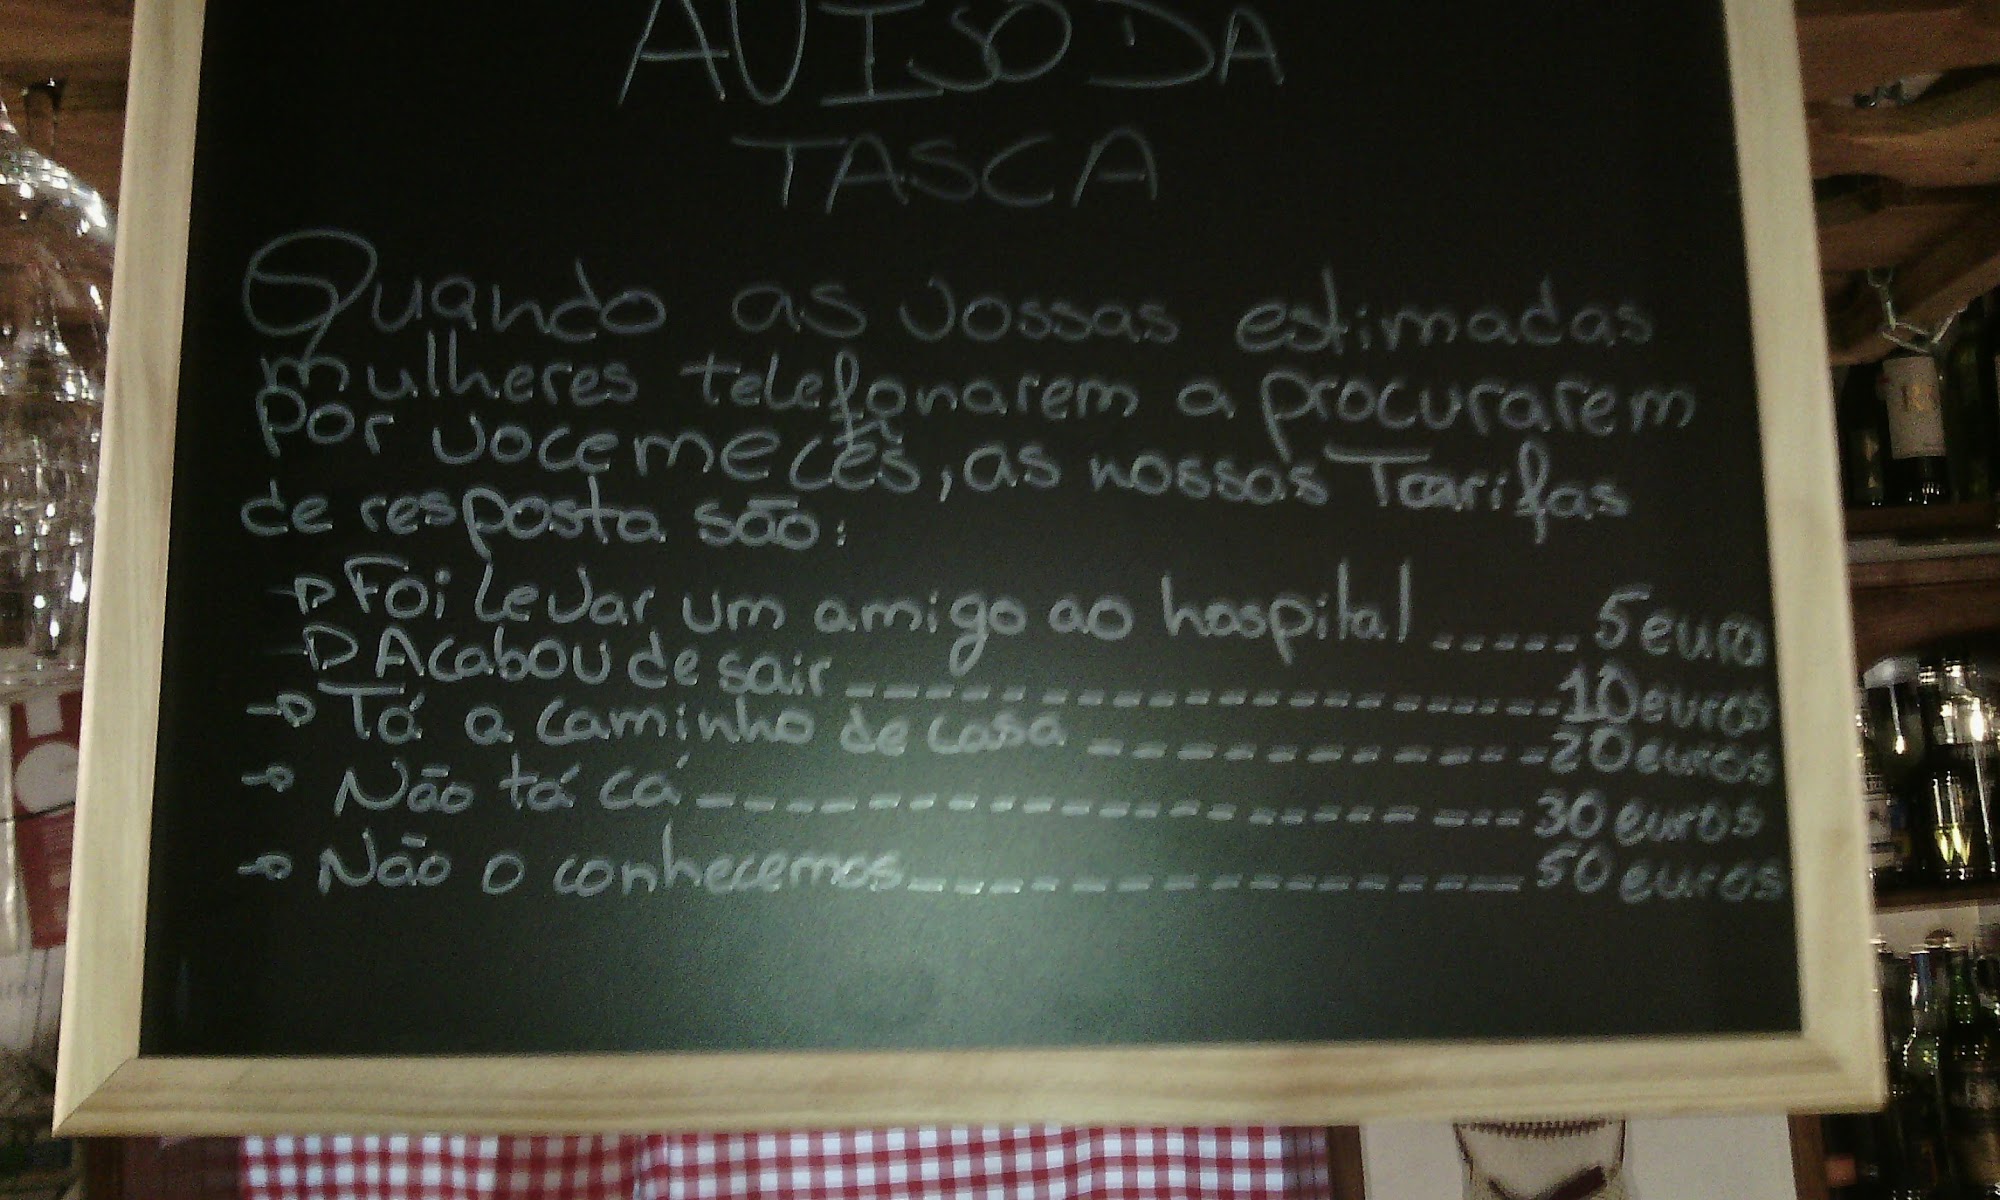 AVISO DA
TASCA
Quando as vossas estimadas
mulheres telefonarem a procurarem
por vocemecês, as nossas Tarifas
de resposta são:
→ Foi levar um amigo ao hospital ----- 5 euro
→ Acabou de sair ------------------ 10 euros
→ Tá a caminho de casa ------------ 20 euros
→ Não tá cá -------------------- 30 euros
→ Não o conhecemos --------------- 50 euros